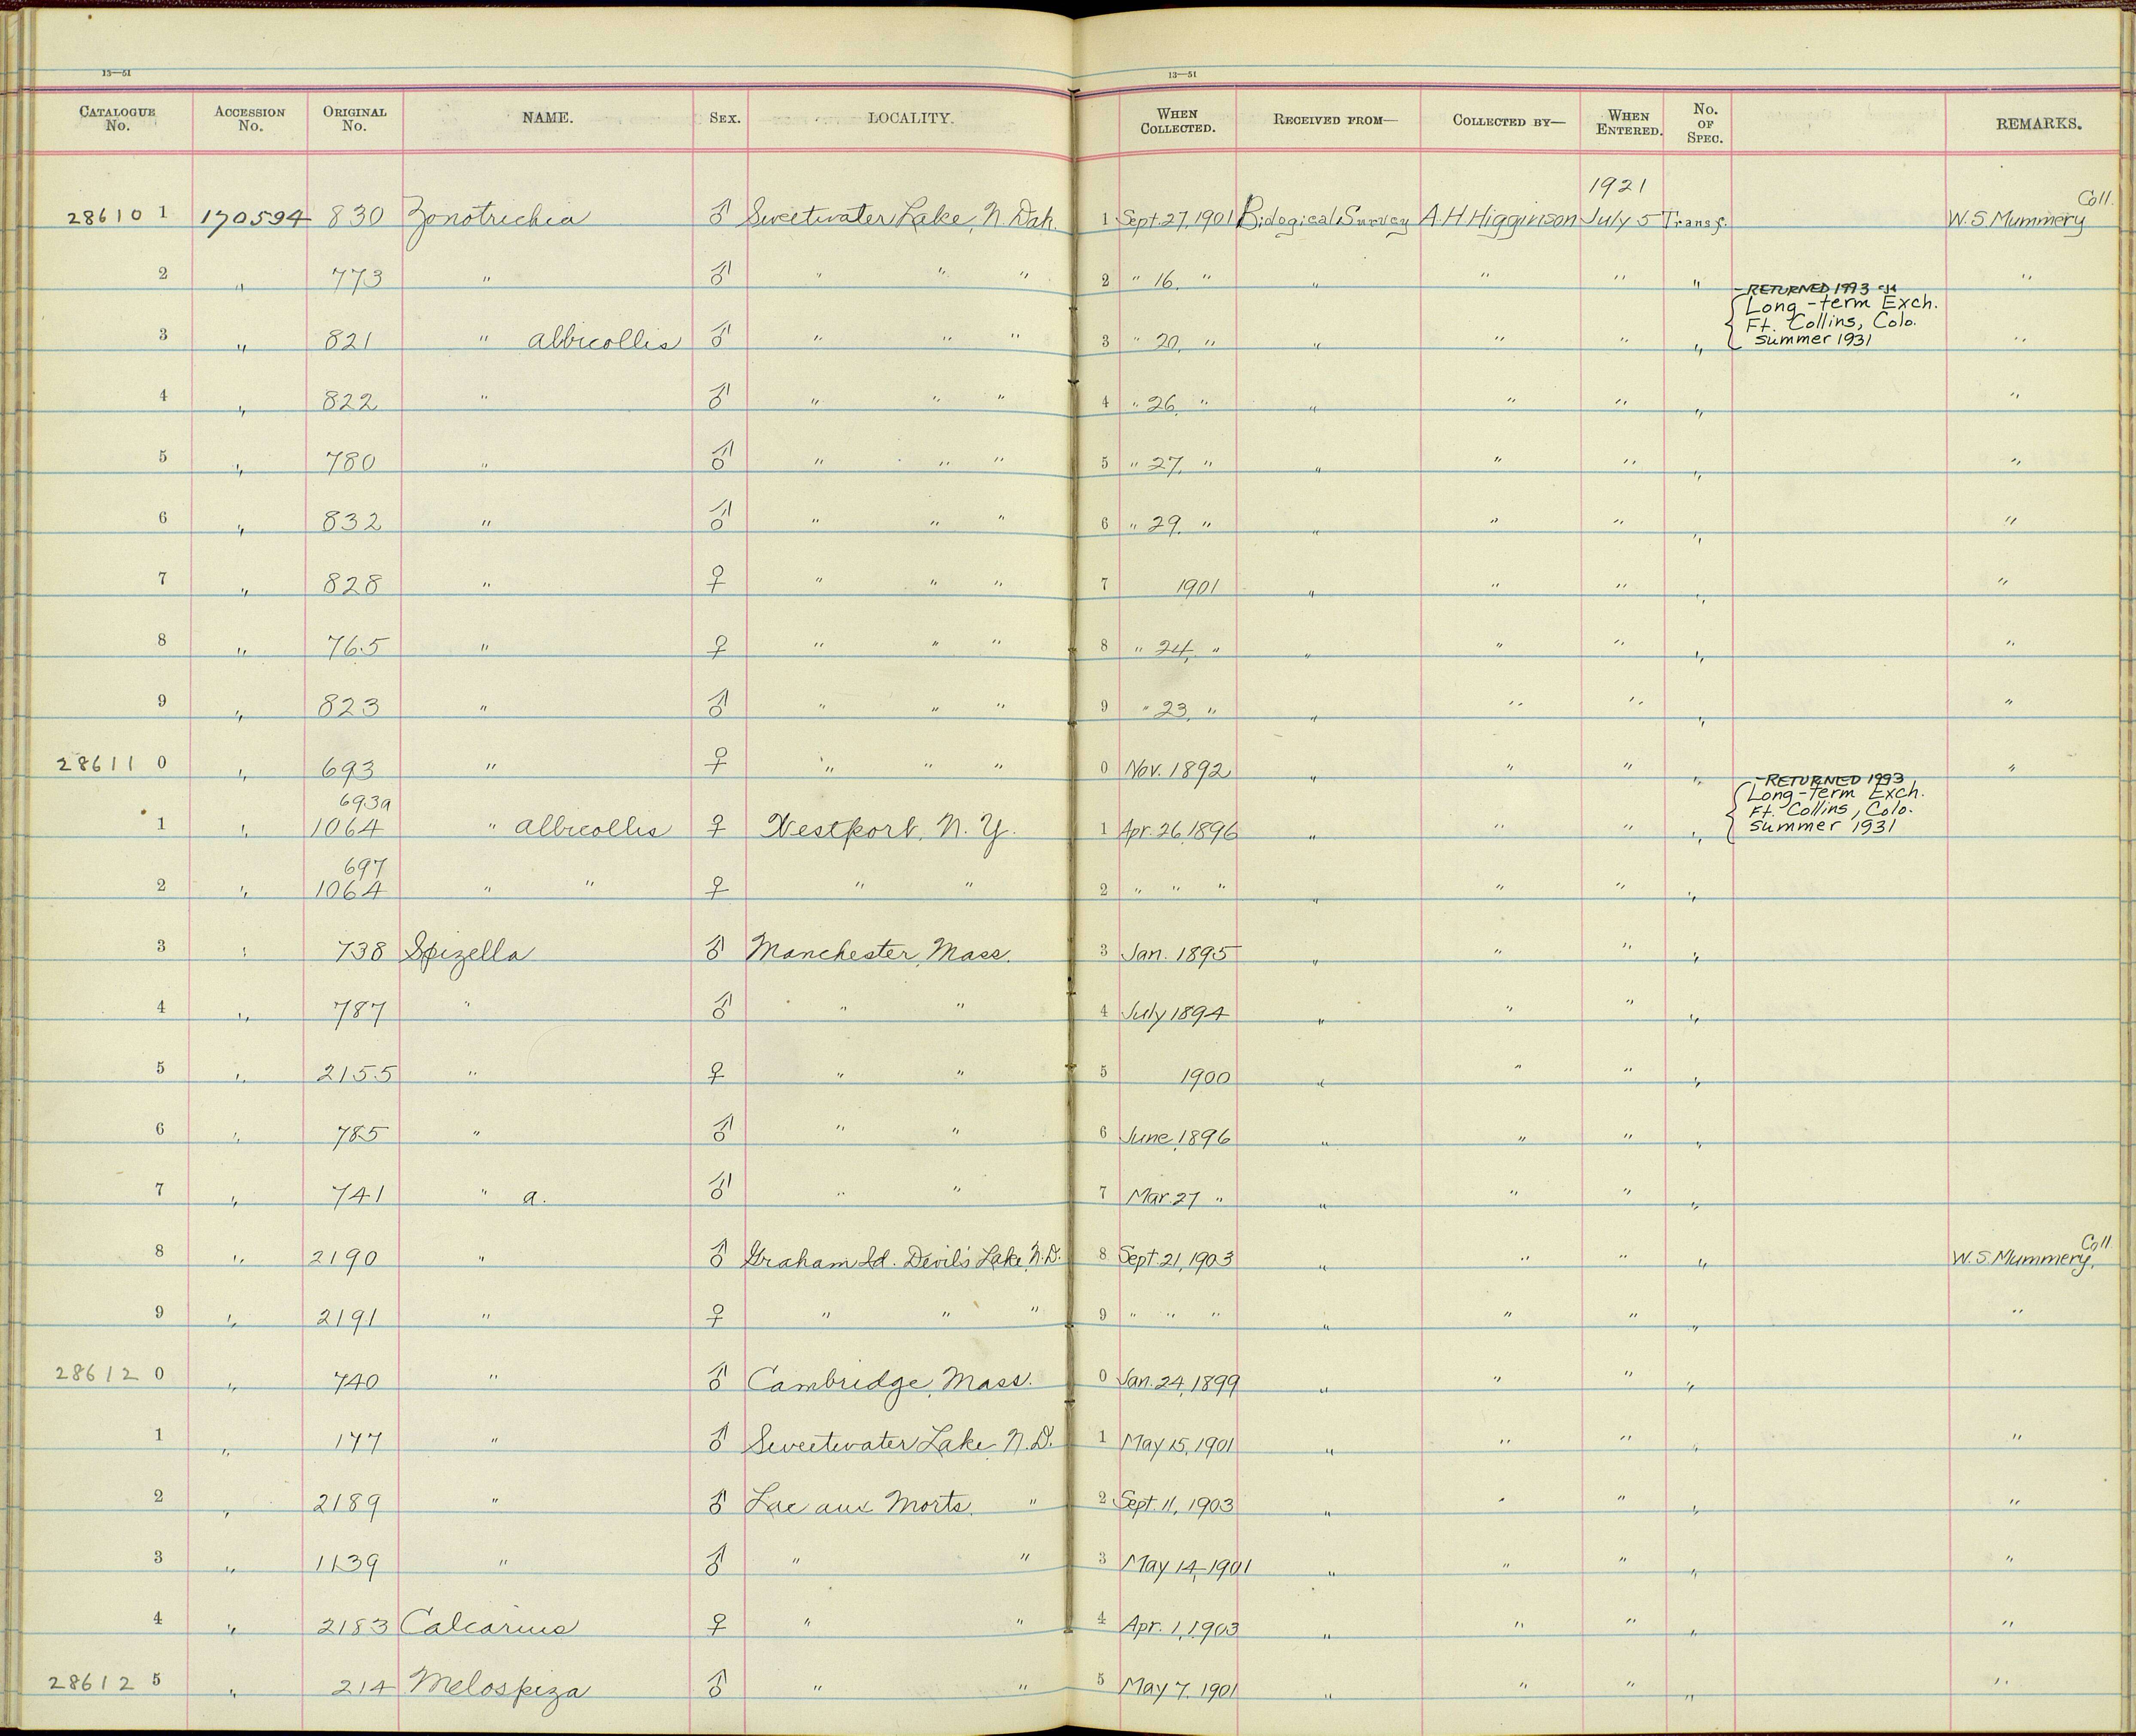 13—51 13—51
CATALOGUE No. ACCESSION No. ORIGINAL No. NAME. SEX. LOCALITY. WHEN COLLECTED. RECEIVED FROM— COLLECTED BY— WHEN ENTERED. No. OF SPEC. REMARKS.
1921
Coll.
28610 1 170594 830 Zonotrichia ♂ Sweetwater Lake, N. Dak. 1 Sept. 27, 1901 Biological Survey A H Higginson July 5 Transf. W. S. Mummery
2 " 773 " ♂ " " " 2 " 16, " " " " " "
RETURNED 1993
{Long-term Exch.
Ft. Collins, Colo.
summer 1931
3 " 821 " albicollis ♂ " " " 3 " 20, " " " " " "
4 " 822 " ♂ " " " 4 " 26, " " " " " "
5 " 780 " ♂ " " " 5 " 27, " " " " " "
6 " 832 " ♂ " " " 6 " 29, " " " " " "
7 " 828 " ♀ " " " 7 1901 " " " " "
8 " 765 " ♀ " " " 8 " 24, " " " " " "
9 " 823 " ♂ " " " 9 " 23, " " " " " "
28611 0 " 693 " ♀ " " " 0 Nov. 1892 " " " " "
RETURNED 1993
{Long-term Exch.
Ft. Collins, Colo.
summer 1931
693a
1 " 1064 " albicollis ♀ Westport, N. Y. 1 Apr. 26, 1896 " " " "
697
2 " 1064 " " ♀ " " 2 " " " " " " "
3 " 738 Spizella ♂ Manchester, Mass. 3 Jan. 1895 " " " "
4 " 787 " ♂ " " 4 July 1894 " " " "
5 " 2155 " ♀ " " 5 1900 " " " "
6 " 785 " ♂ " " 6 June, 1896 " " " "
7 " 741 " a. ♂ " " 7 Mar. 27 " " " " "
Coll.
8 " 2190 " ♂ Graham Id. Devil's Lake, N.D. 8 Sept. 21, 1903 " " " " W. S. Mummery,
9 " 2191 " ♀ " " " 9 " " " " " " " "
28612 0 " 740 " ♂ Cambridge, Mass. 0 Jan. 24, 1899 " " " "
1 " 177 " ♂ Sweetwater Lake, N.D. 1 May 15, 1901 " " " " "
2 " 2189 " ♂ Lac aux Morts, " 2 Sept. 11, 1903 " " " " "
3 " 1139 " ♂ " " 3 May 14, 1901 " " " " "
4 " 2183 Calcarius ♀ " " 4 Apr. 1, 1903 " " " " "
28612 5 " 214 Melospiza ♂ " " 5 May 7, 1901 " " " " "